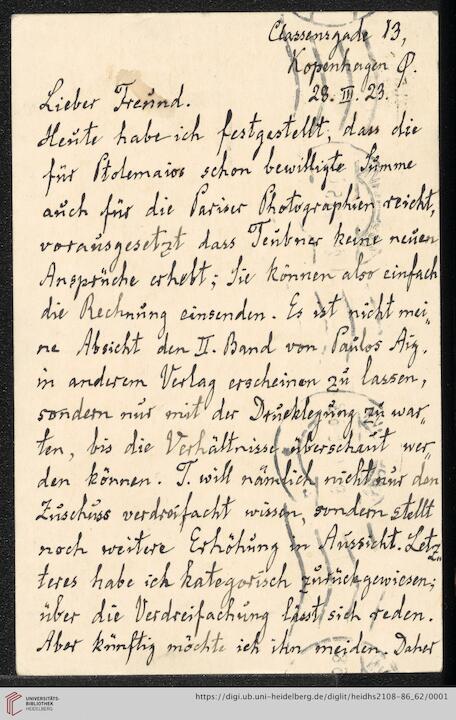 Classensgade 13,
Kopenhagen Ø.
28. III. 23.
Lieber Freund.
Heute habe ich festgestellt, dass die
für Ptolemaios schon bewilligte Summe
auch für die Pariser Photographien reicht,
vorausgesetzt dass Teubner keine neuen
Ansprüche erhebt; Sie können also einfach
die Rechnung einsenden. Es ist nicht mei„
ne Absicht den II. Band von Paulos Aig.
in anderem Verlag erscheinen zu lassen,
sondern nur mit der Drucklegung zu war„
ten, bis die Verhältnisse überschaut wer„
den können. T. will nämlich nicht nur den
Zuschuss verdreifacht wissen, sondern stellt
noch weitere Erhöhung in Aussicht. Letz„
teres habe ich kategorisch zurückgewiesen;
über die Verdreifachung lässt sich reden.
Aber künftig möchte ich ihn meiden. Daher
UNIVERSITÄTS-
BIBLIOTHEK
HEIDELBERG
https://digi.ub.uni-heidelberg.de/diglit/heidhs2108-86_62/0001